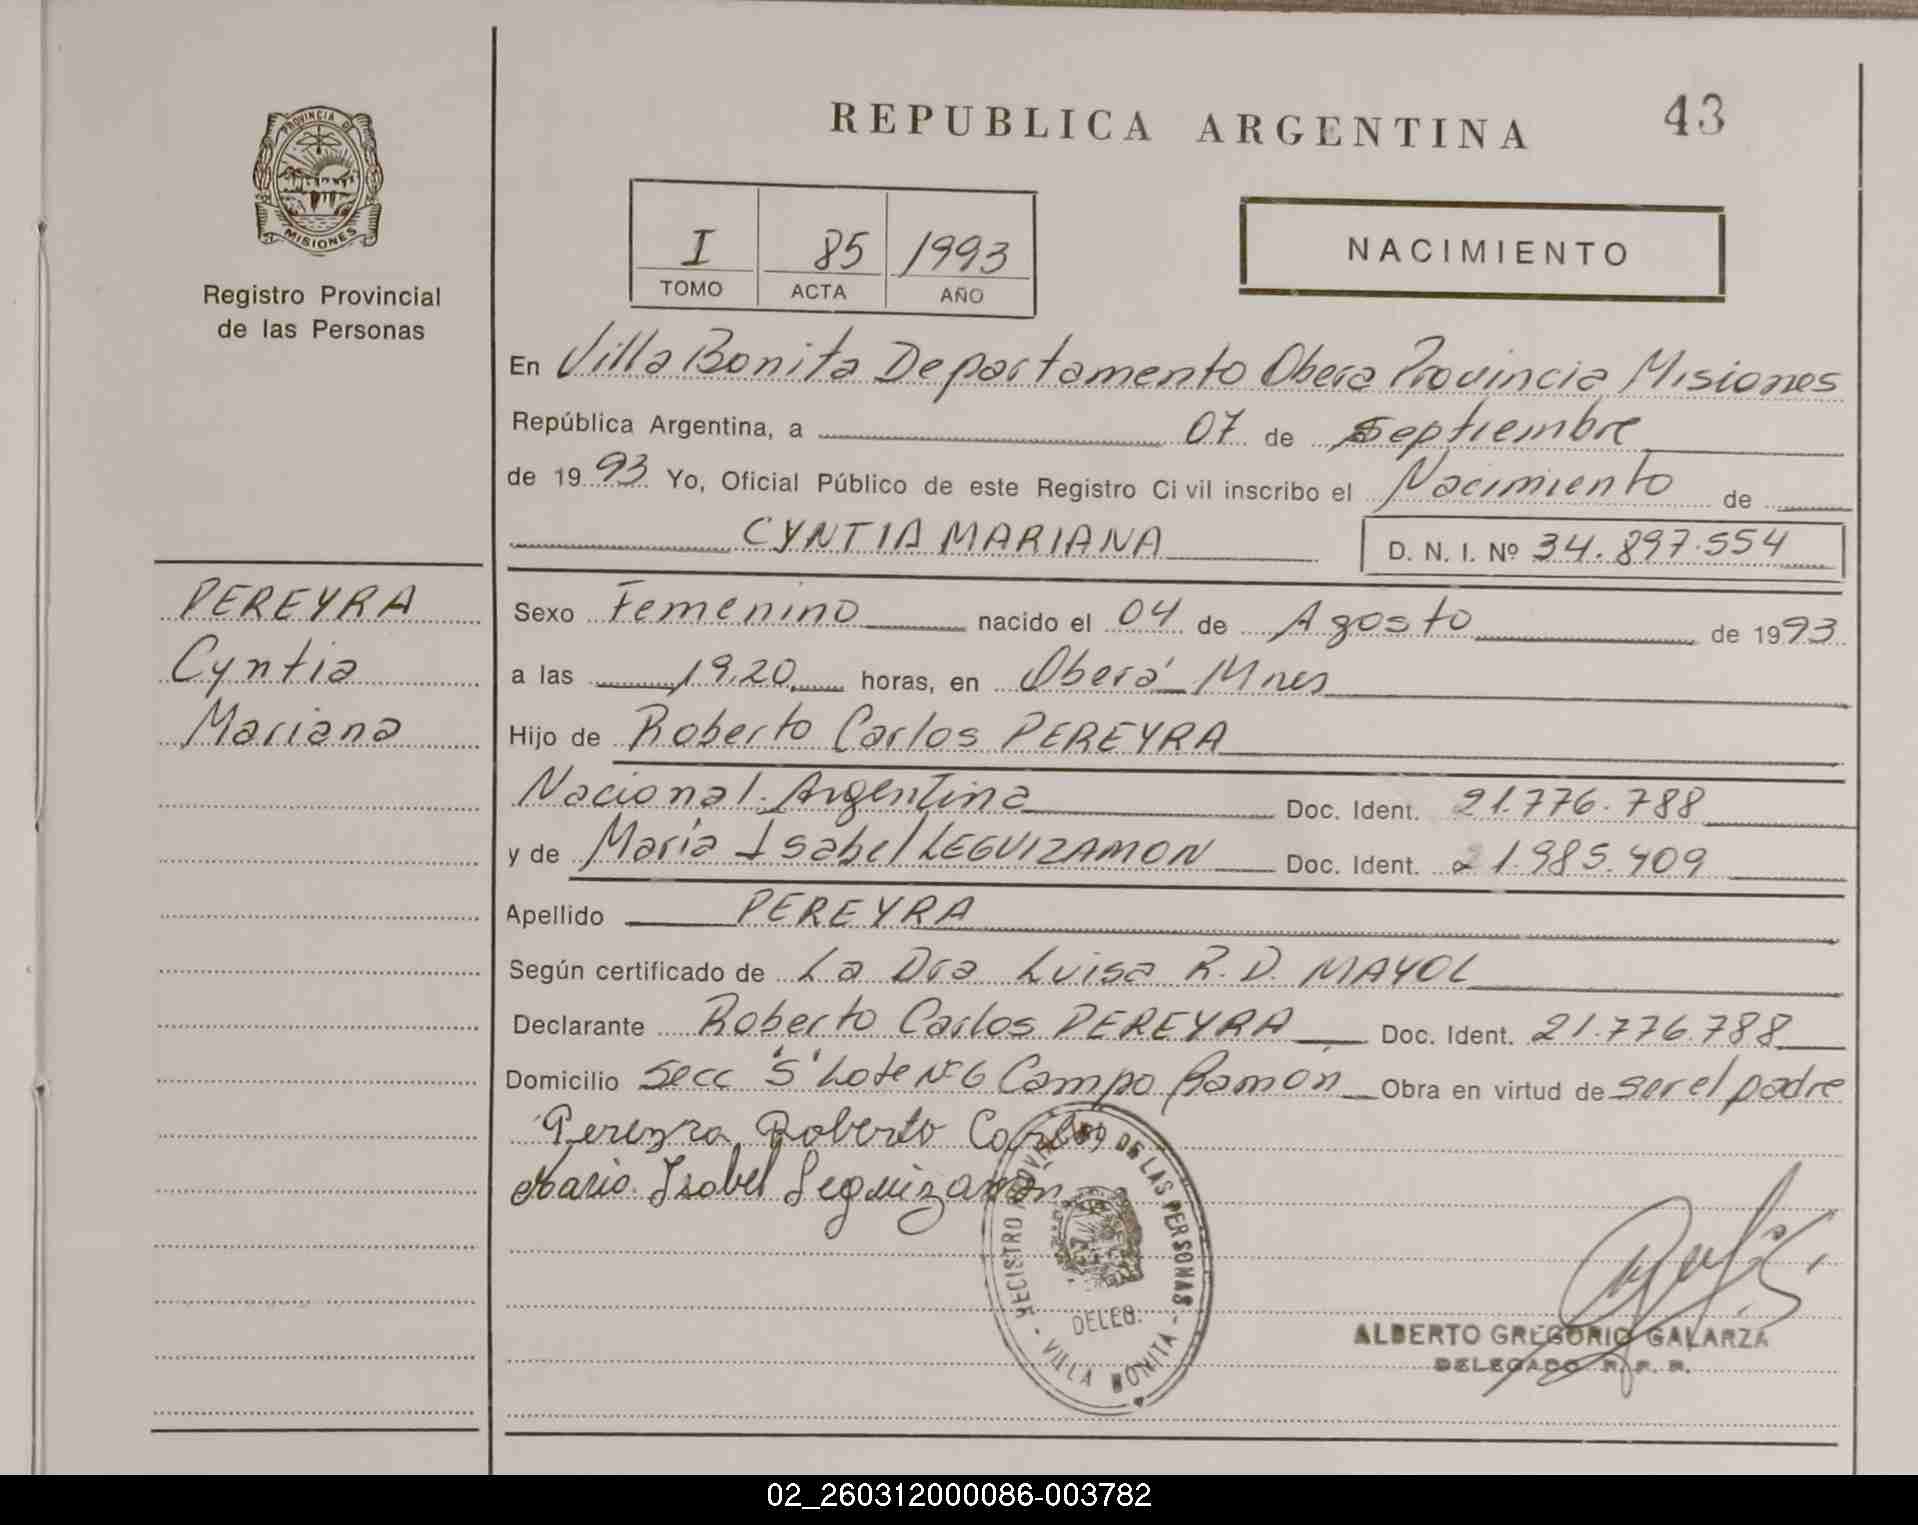 REPUBLICA ARGENTINA
43
PROVINCIA DE
MISIONES
Registro Provincial
de las Personas
I 85 1993
TOMO ACTA AÑO
NACIMIENTO
En Villa Bonita Departamento Obera Provincia Misiones
República Argentina, a 07 de Septiembre
de 1993 Yo, Oficial Público de este Registro Civil inscribo el Nacimiento de
CYNTIA MARIANA D. N. I. Nº 34.897.554
PEREYRA
Cyntia
Mariana
Sexo Femenino nacido el 04 de Agosto de 1993
a las 19,20 horas, en Oberá Mnes
Hijo de Roberto Carlos PEREYRA
Nacional. Argentina Doc. Ident. 21.776.788
y de María Isabel LEGUIZAMON Doc. Ident. 21.985.409
Apellido PEREYRA
Según certificado de La Dra Luisa R. D. MAYOL
Declarante Roberto Carlos PEREYRA Doc. Ident. 21.776.788
Domicilio Secc "S" Lote Nº 6 Campo Ramón Obra en virtud de ser el padre
Pereyra Roberto Carlos
Maria Isabel Leguizamon
REGISTRO PROVINCIAL DE LAS PERSONAS
DELEG.
- VILLA BONITA -
ALBERTO GREGORIO GALARZA
DELEGADO R. P. P.
02_260312000086-003782